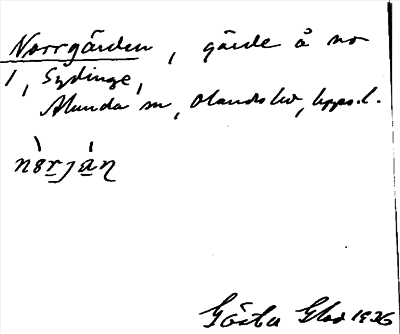 Norrgården, gärde å no
1, Sydinge,
Alunda sn, Olands hd, Upps. l.
Gösta 1936